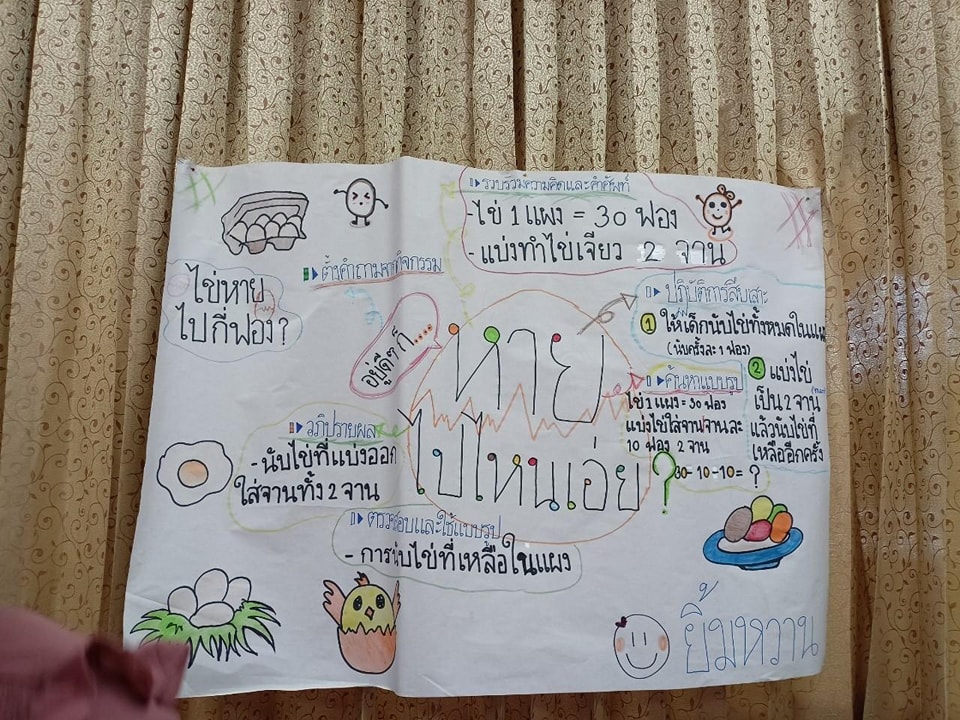 รวบรวมความคิดและคำศัพท์
-ไข่ 1 แผง = 30 ฟอง
- แบ่งทำไข่เจียว 2 จาน
ตั้งคำถามจากกิจกรรม
ไข่หาย
ไปกี่ฟอง?
อยู่ดีๆ ก็....
หาย
ไปไหนเอ่ย?
ปฏิบัติการสืบเสาะ
1 ให้เด็กนับไข่ทั้งหมดในแผง
(นับครั้งละ 1 ฟอง)
2 แบ่งไข่
เป็น 2 จาน
แล้วนับไข่ที่
เหลืออีกครั้ง
ค้นหาแบบรูป
ไข่ 1 แผง = 30 ฟอง
แบ่งไข่ใส่จาน จานละ
10 ฟอง 2 จาน
30-10-10= ?
อภิปรายผล
- นับไข่ที่แบ่งออก
ใส่จานทั้ง 2 จาน
ตรวจสอบและใช้แบบรูป
- การนับไข่ที่เหลือในแผง
ยิ้มหวาน